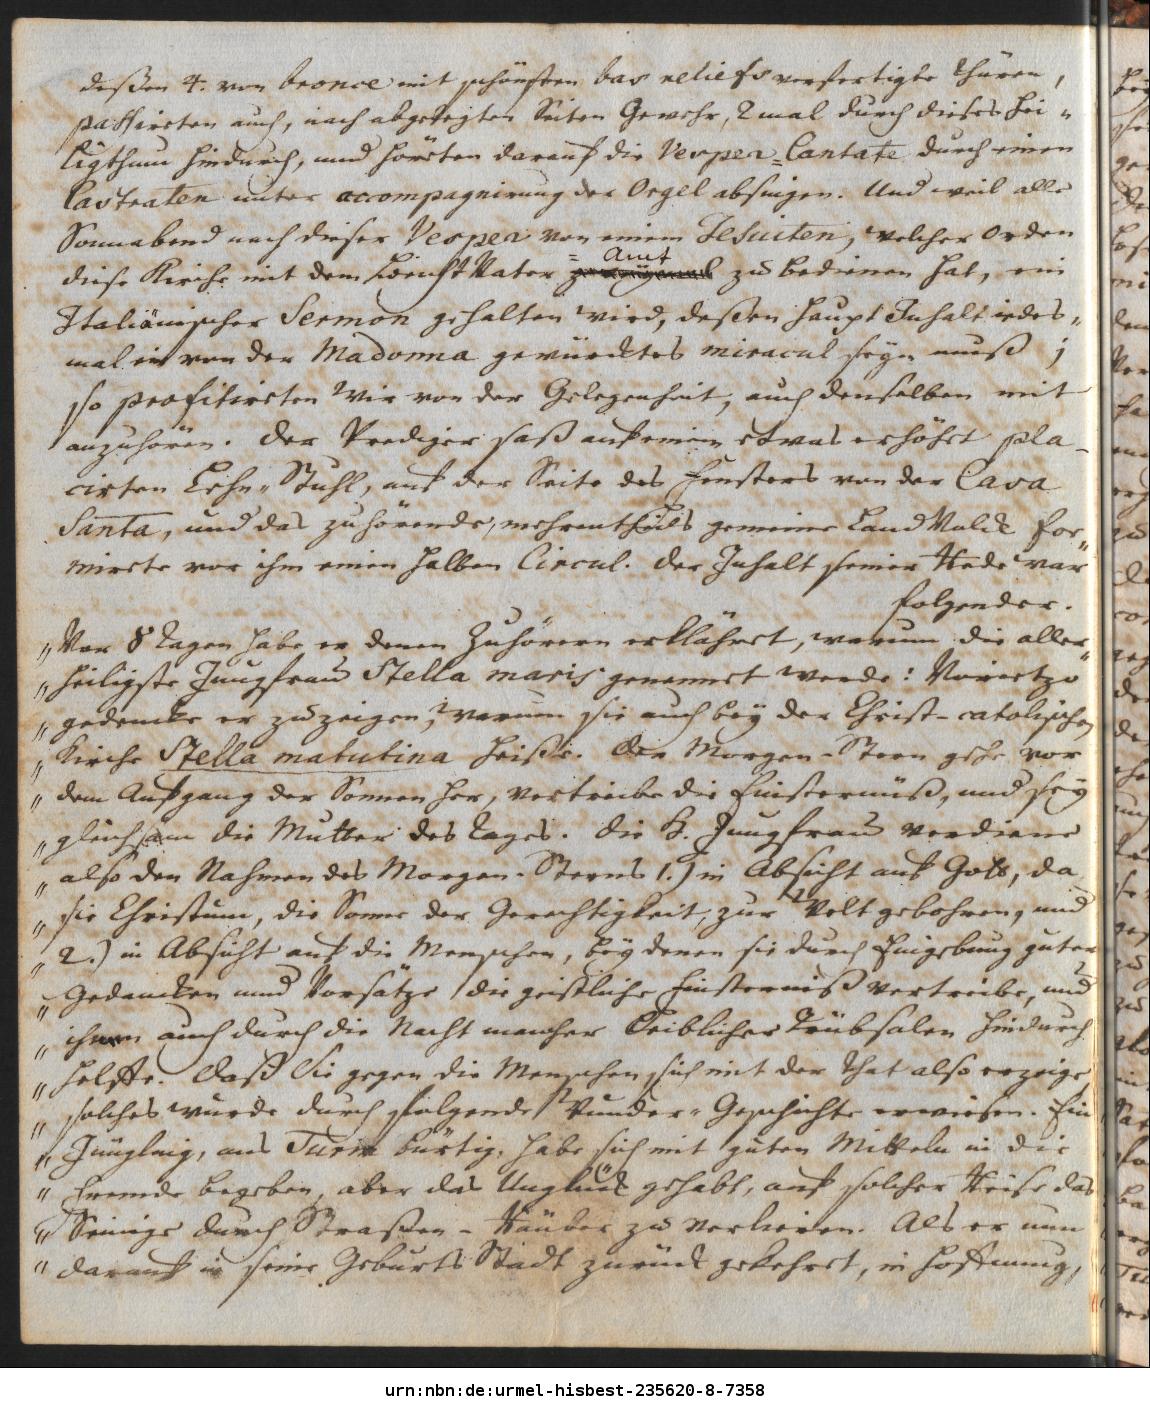 deßen 4. von bronce mit schönsten bas reliefs verfertigte Thüren,
paßirten auch, nach abgelegten Seiten Gewehr, 2 mal durch dieses Hei"
ligthum hindurch, und hörten darauf die Vesper=Cantate durch einen
Castraten unter accompagnirung der Orgel absingen. Und weil alle
Sonnabend nach dieser Vesper von einem Jesuiten, welcher Orden
diese Kirche mit dem Beicht Vater =Amt zu bedienen hat, ein
Italiänischer Sermon gehalten wird, deßen Haupt Inhalt iedes"
mal ein von der Madonna gewürcktes miracul seyn muß;
so profitirten wir von der Gelegenheit, auch denselben mit
anzuhören. Der Prediger saß auf einen etwas erhöhet pla-
cirten Lehn"Stuhl, auf der Seite des Fensters von der Casa
Santa, und das zuhörende, mehrentheils gemeine Land Volck for"
mirte vor ihm einen halben Circul. Der Inhalt seiner Rede war
folgender.
" Vor 8 Tagen habe er denen Zuhörern erklähret, warum die aller"
" heiligste Jungfrau Stella maris genennet werde: Vorietzo
" gedencke er zu zeigen, warum sie auch bey der Christ-catolischen
" Kirche Stella matutina heiße. Der Morgen-Stern gehe vor
" dem Aufgang der Sonnen her, vertreibe die Finsternüß, und sey
" gleichsam die Mutter des Tages. Die H. Jungfrau verdiene
" also den Nahmen des Morgen-Sterns 1.) in Absicht auf Gott, da
" sie Christum, die Sonne der Gerechtigkeit, zur Welt gebohren, und
" 2.) in Absicht auf die Menschen, bey denen sie durch Eingebung guter
" Gedancken und Vorsätze die geistliche Finsterniß vertreibe, und
" ihnen auch durch die Nacht mancher leiblicher Trübsalen hindurch
" helffe. Daß Sie gegen die Menschen sich mit der That also erzeige,
" solches wurde durch folgende Wunder-Geschichte erwiesen. Ein
" Jüngling, aus Turin bürtig, habe sich mit guten Mitteln in die
" Fremde begeben, aber das Unglück gehabt, auf solcher Reise das
" Seinige durch Straßen-Räuber zu verlieren. Als er nun
" darauf in seine Geburts Stadt zurück gekehret, in Hoffnung,
urn:nbn:de:urmel-hisbest-235620-8-7358